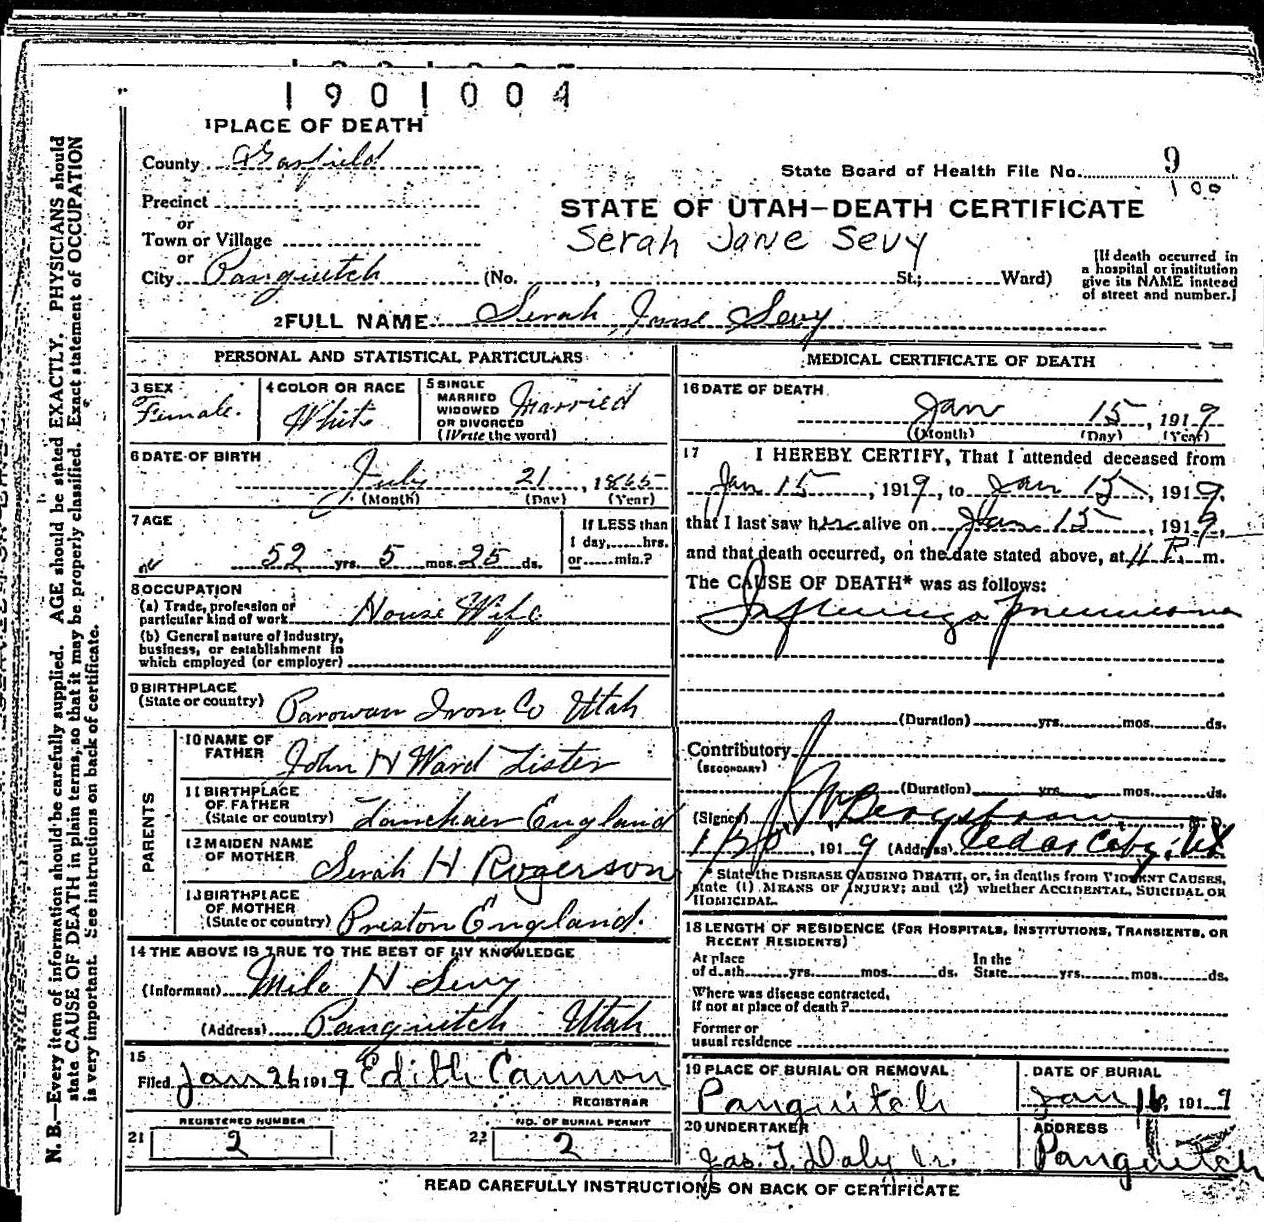 1901004
1 PLACE OF DEATH
County Garfield
State Board of Health File No. 9
100
Precinct
or
Town or Village
or
City Panguitch (No. , St.; Ward)
STATE OF UTAH—DEATH CERTIFICATE
Serah Jane Sevy
[If death occurred in
a hospital or institution
give its NAME instead
of street and number.]
2 FULL NAME Serah Jane Sevy
PERSONAL AND STATISTICAL PARTICULARS
3 SEX
Female.
4 COLOR OR RACE
White
5 SINGLE
MARRIED
WIDOWED
OR DIVORCED
(Write the word)
Married
6 DATE OF BIRTH
July 21, 1865
(Month) (Day) (Year)
7 AGE
52 yrs. 5 mos. 25 ds.
If LESS than
1 day, hrs.
or min.?
8 OCCUPATION
(a) Trade, profession or
particular kind of work House Wife
(b) General nature of industry,
business, or establishment in
which employed (or employer)
9 BIRTHPLACE
(State or country) Parowan Iron Co Utah
PARENTS
10 NAME OF
FATHER John H Ward Lister
11 BIRTHPLACE
OF FATHER
(State or country) England
12 MAIDEN NAME
OF MOTHER Serah H Rogerson
13 BIRTHPLACE
OF MOTHER
(State or country) Preston England.
14 THE ABOVE IS TRUE TO THE BEST OF MY KNOWLEDGE
(Informant) Milo H Sevy
(Address) Panguitch Utah
15
Filed Jan 26 1919 Edith Cannon
REGISTRAR
REGISTERED NUMBER
21 2
NO. OF BURIAL PERMIT
22 2
MEDICAL CERTIFICATE OF DEATH
16 DATE OF DEATH
Jan 15, 1919
(Month) (Day) (Year)
17 I HEREBY CERTIFY, That I attended deceased from
Jan 15, 1919, to Jan 15, 1919,
that I last saw her alive on Jan 15, 1919,
and that death occurred, on the date stated above, at 11 P. m.
The CAUSE OF DEATH* was as follows:
Influenza Pneumonia
(Duration) yrs. mos. ds.
Contributory
(SECONDARY)
(Duration) yrs. mos. ds.
(Signed) M. D.
, 1919 (Address) Cedar City, Ut
* State the DISEASE CAUSING DEATH, or, in deaths from VIOLENT CAUSES,
state (1) MEANS OF INJURY; and (2) whether ACCIDENTAL, SUICIDAL OR
HOMICIDAL.
18 LENGTH OF RESIDENCE (FOR HOSPITALS, INSTITUTIONS, TRANSIENTS, OR
RECENT RESIDENTS)
At place
of death yrs. mos. ds.
In the
State yrs. mos. ds.
Where was disease contracted,
if not at place of death?
Former or
usual residence
19 PLACE OF BURIAL OR REMOVAL
Panguitch
DATE OF BURIAL
Jan 16, 1919
20 UNDERTAKER
Jas. T. Daly Jr.
ADDRESS
Panguitch
READ CAREFULLY INSTRUCTIONS ON BACK OF CERTIFICATE
N. B.—Every item of information should be carefully supplied. AGE should be stated EXACTLY. PHYSICIANS should
state CAUSE OF DEATH in plain terms, so that it may be properly classified. Exact statement of OCCUPATION
is very important. See instructions on back of certificate.